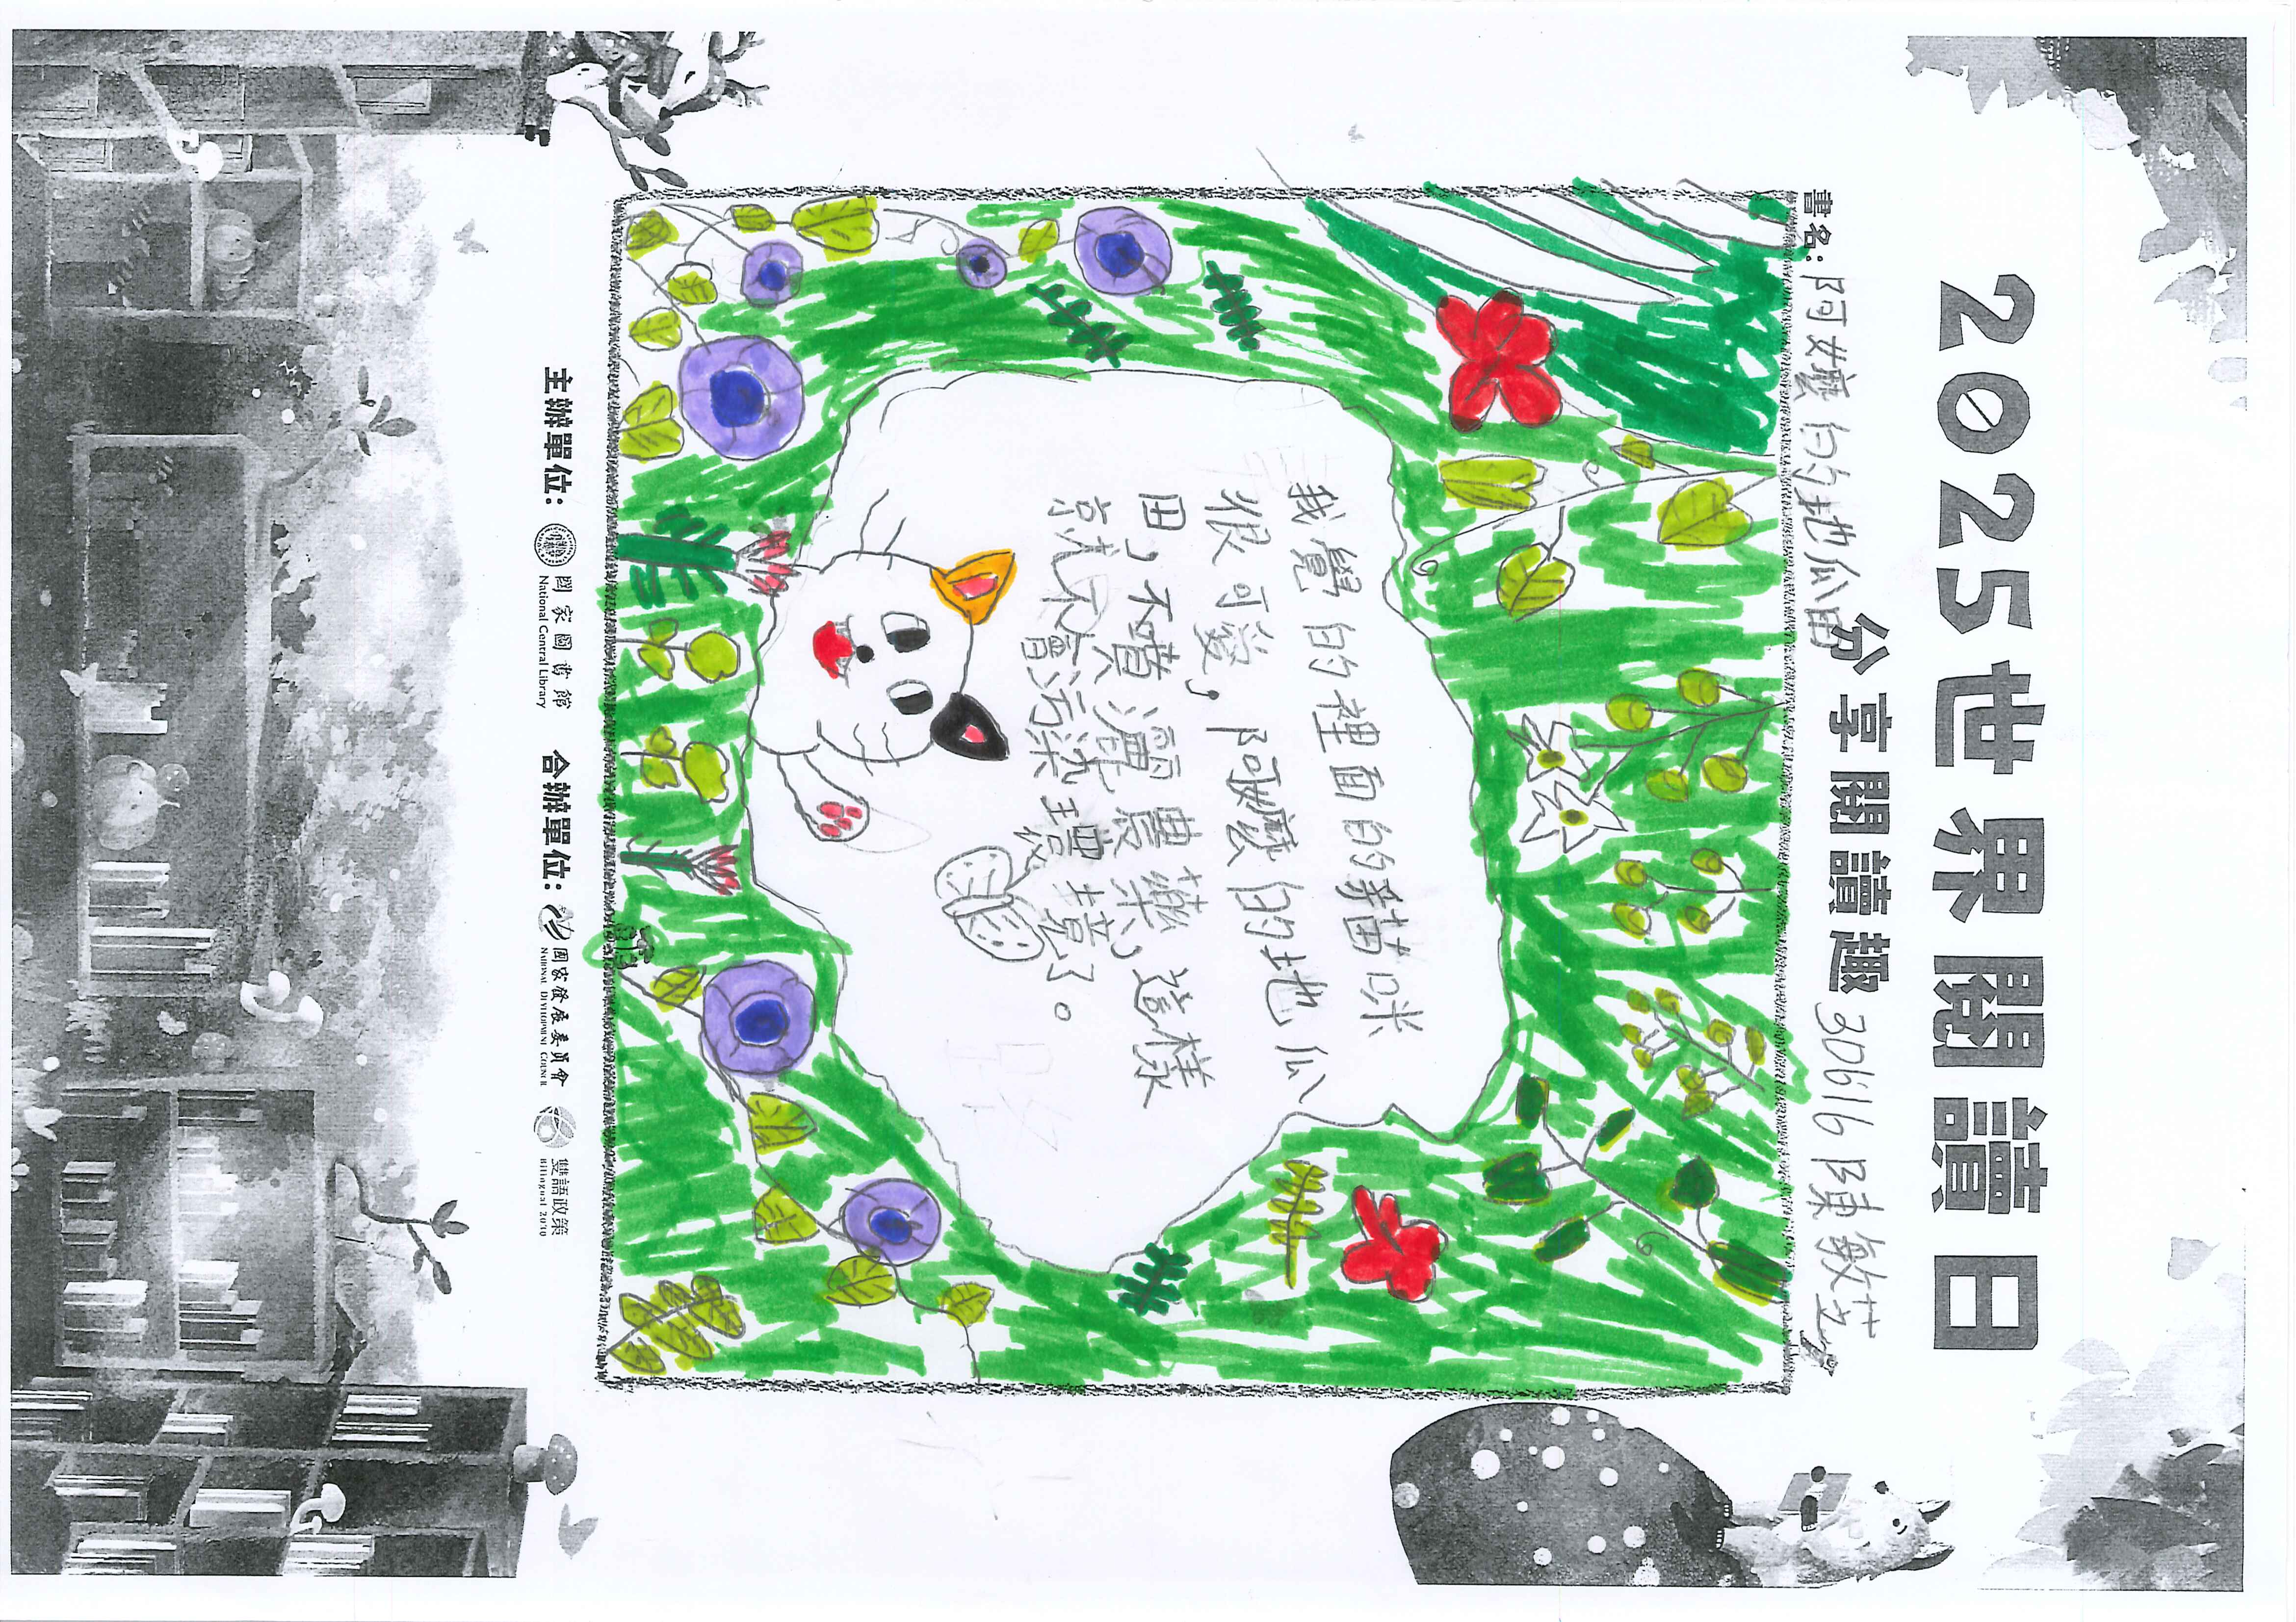 2025世界閱讀日
分享閱讀趣 30616 陳敏芝
書名：阿嬤的地瓜田
我覺的裡面的貓咪
很可愛，阿嬤的地瓜
田，不噴灑農藥，這樣
就不會污染環境了。
主辦單位： 國家圖書館 National Central Library 合辦單位： 國家發展委員會 NATIONAL DEVELOPMENT COUNCIL 雙語政策 Bilingual 2030